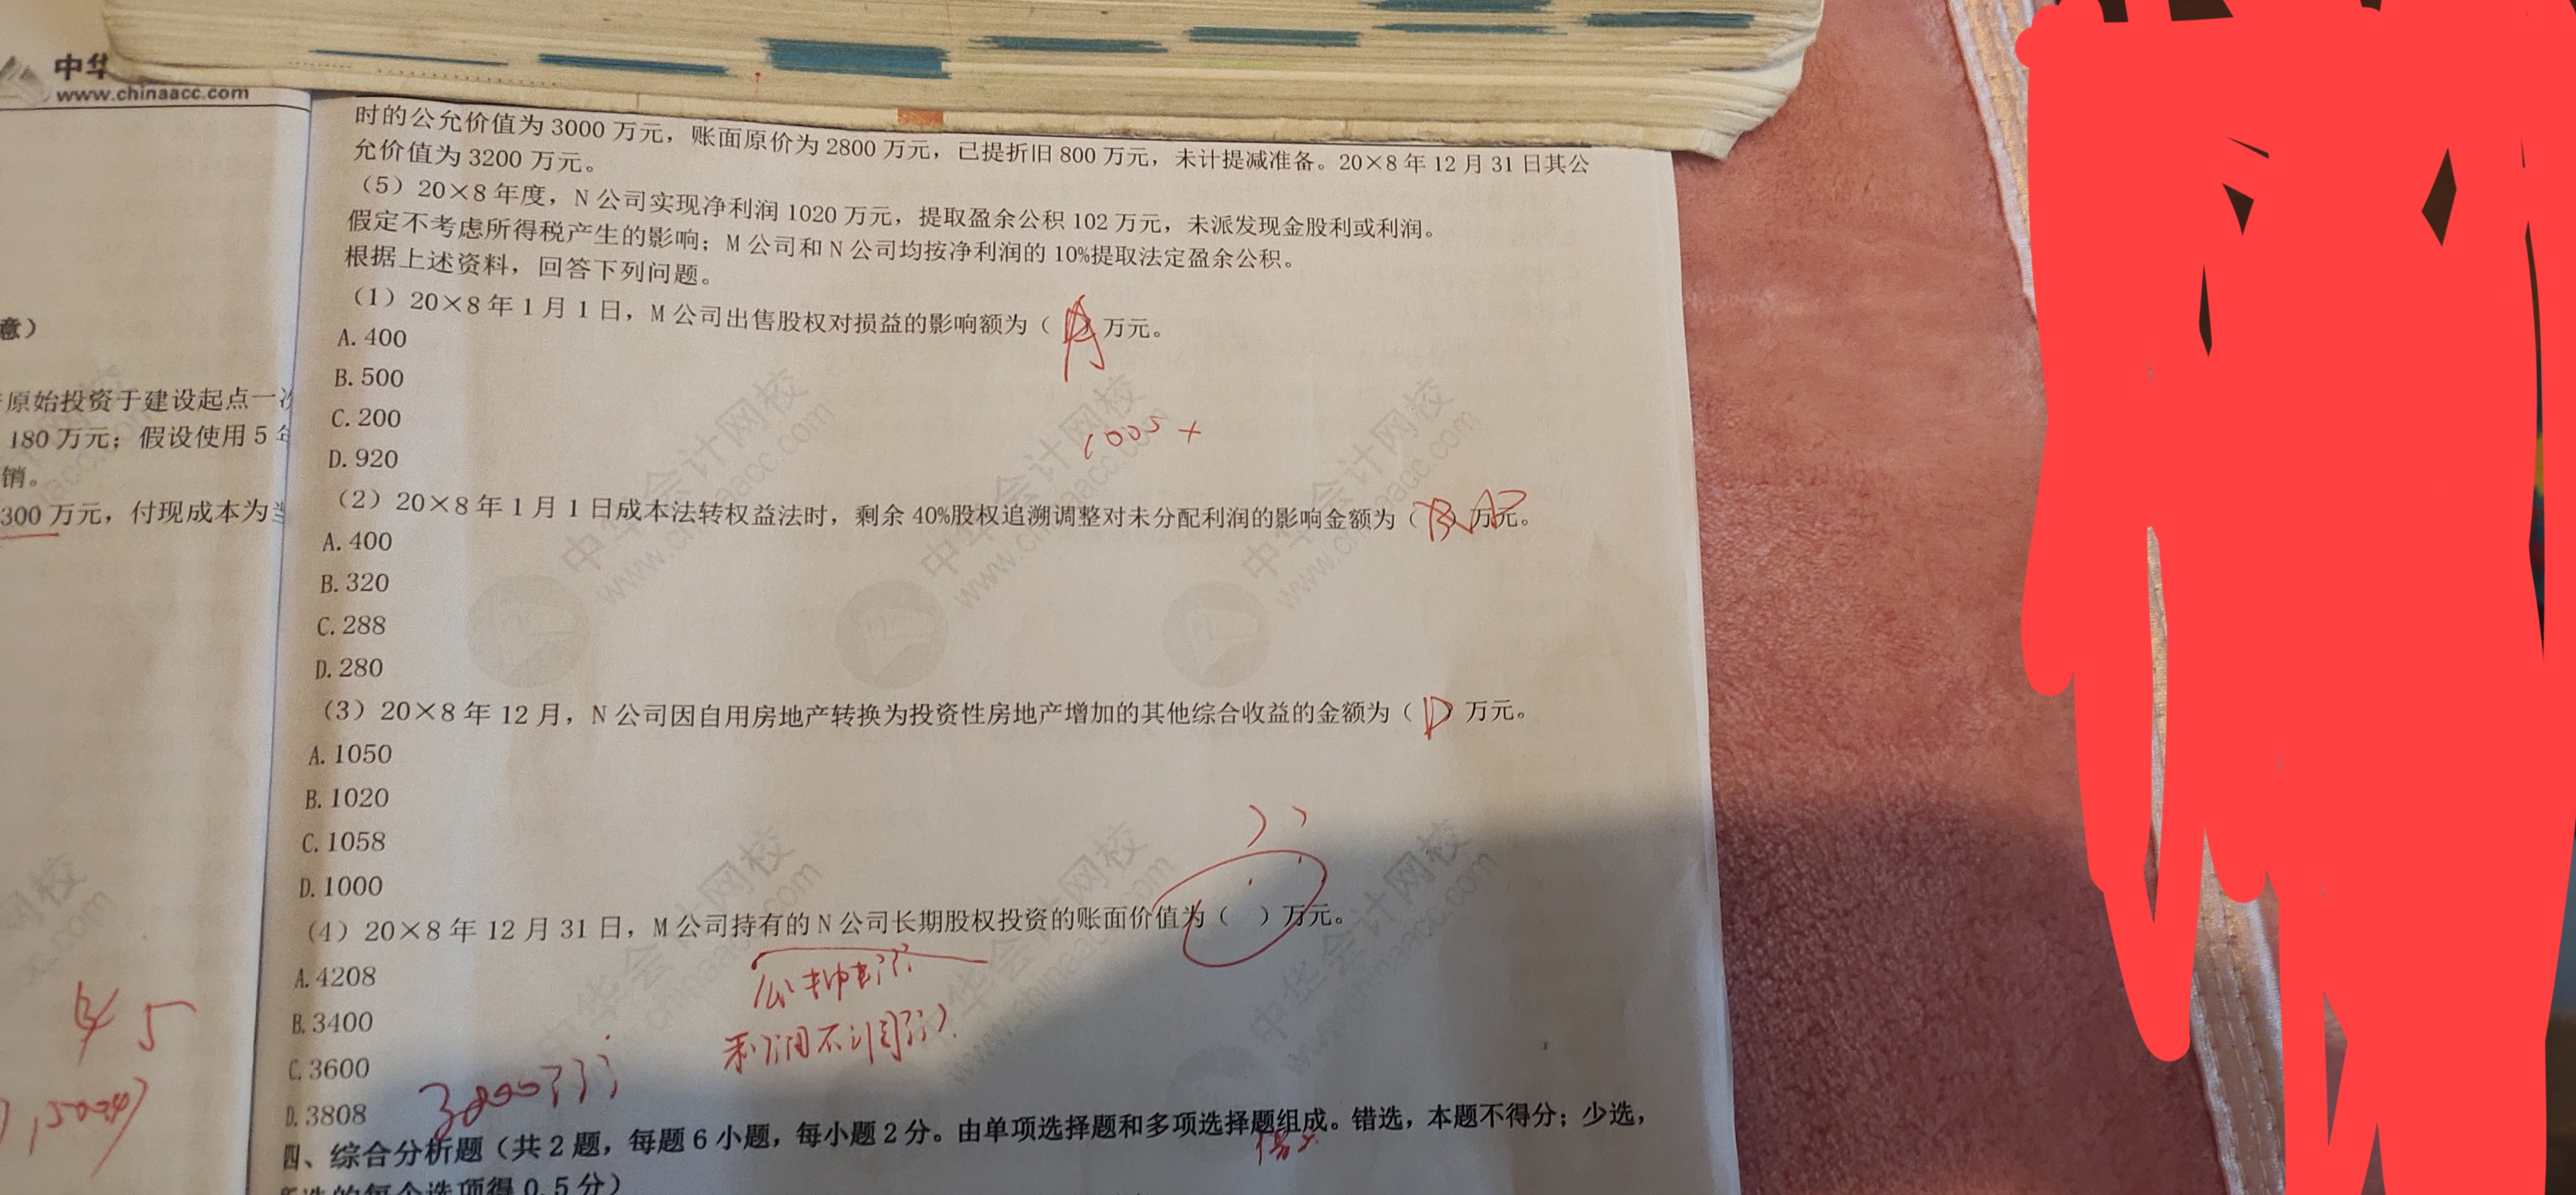 中华
www.chinaacc.com
意）
原始投资于建设起点一次
180 万元；假设使用 5 年
销。
300 万元，付现成本为
时的公允价值为 3000 万元，账面原价为 2800 万元，已提折旧 800 万元，未计提减准备。20×8 年 12 月 31 日其公
允价值为 3200 万元。
（5）20×8 年度，N 公司实现净利润 1020 万元，提取盈余公积 102 万元，未派发现金股利或利润。
假定不考虑所得税产生的影响；M 公司和 N 公司均按净利润的 10%提取法定盈余公积。
根据上述资料，回答下列问题。
（1）20×8 年 1 月 1 日，M 公司出售股权对损益的影响额为（A）万元。
A. 400
B. 500
C. 200
D. 920
（2）20×8 年 1 月 1 日成本法转权益法时，剩余 40%股权追溯调整对未分配利润的影响金额为（ ）万元。
A. 400
B. 320
C. 288
D. 280
（3）20×8 年 12 月，N 公司因自用房地产转换为投资性房地产增加的其他综合收益的金额为（D）万元。
A. 1050
B. 1020
C. 1058
D. 1000
（4）20×8 年 12 月 31 日，M 公司持有的 N 公司长期股权投资的账面价值为（ ）万元。
A. 4208
B. 3400
C. 3600
D. 3808
四、综合分析题（共 2 题，每题 6 小题，每小题 2 分。由单项选择题和多项选择题组成。错选，本题不得分；少选，
所选的每个选项得 0.5 分）
中华会计网校
www.chinaacc.com